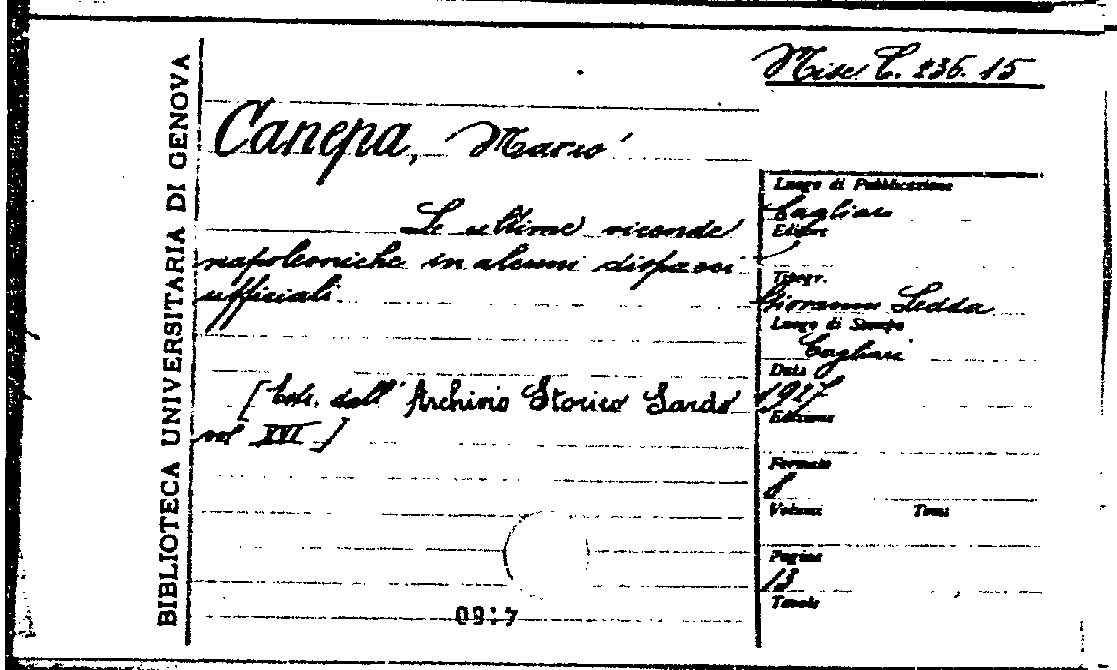 BIBLIOTECA UNIVERSITARIA DI GENOVA
Misc C. 236. 15
Canepa, Mario
Le ultime vicende
napoleoniche in alcuni dispacci
ufficiali.
[Estr. dall' Archivio Storico Sardo
vol XVI]
0917
Luogo di Pubblicazione
Cagliari
Editore
Tipogr.
Giovanni Ledda
Luogo di Stampa
Cagliari
Data
1927
Edizione
Formato
8
Volumi Tomi
Pagine
13
Tavole